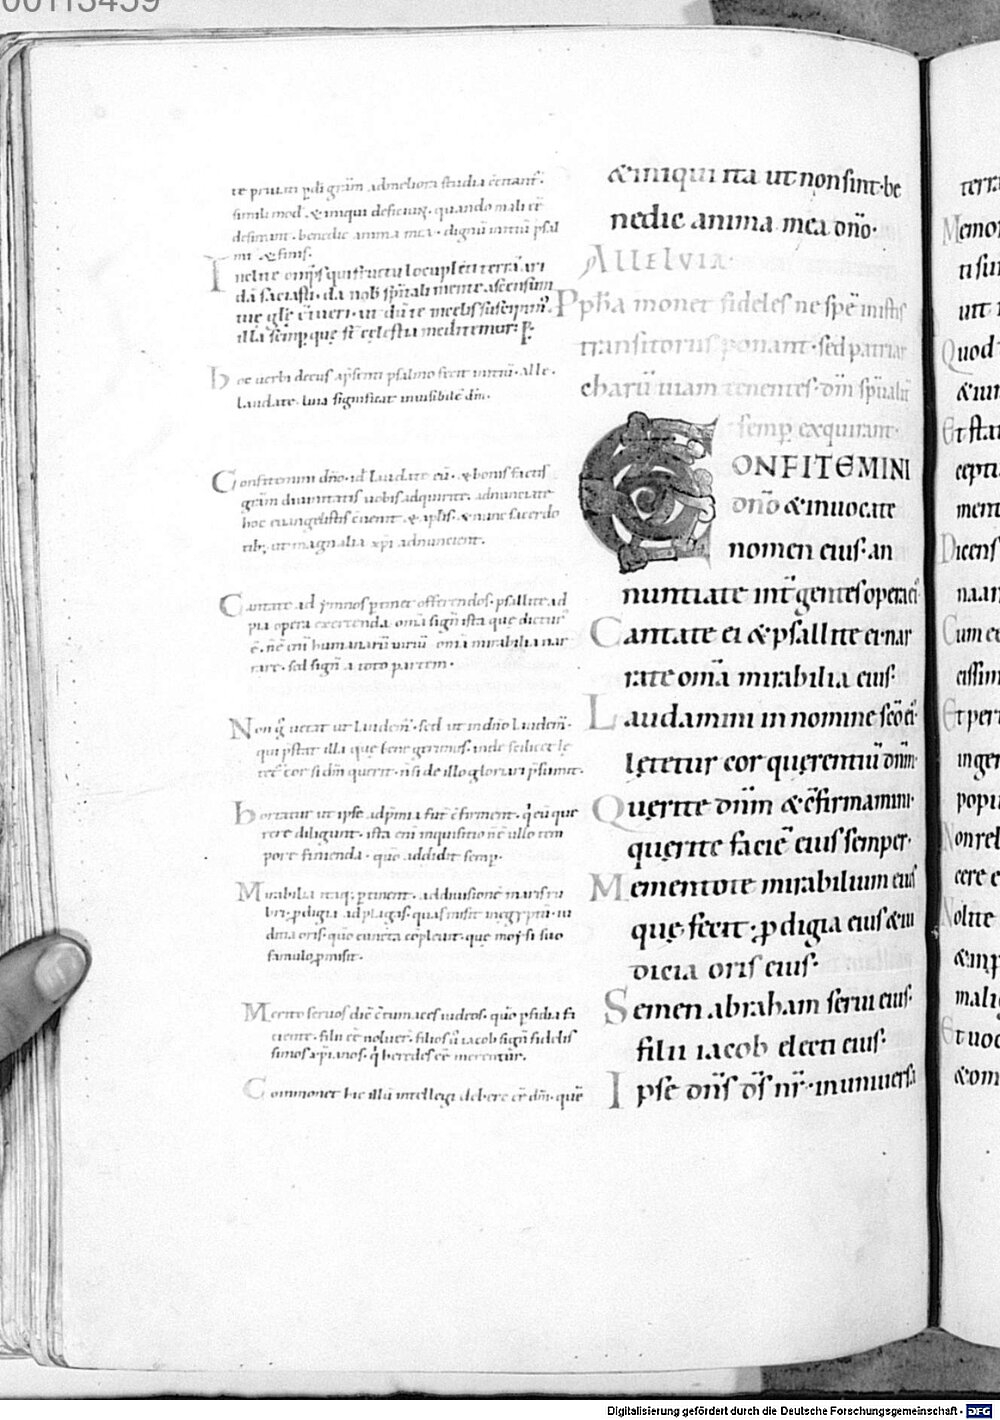 00113459
te prauũ pdi grãm ad meliora studia cõtranf̃.
simili mod̃. & iniqui deficiuꝫ. quando mali eẽ
desinant. benedic anima mea. dignũ initiũ psal
mi & finis.
da saciasti. da nob sp̃itali mente ascensum
illa semp que st̃ cęlestia meditemur: P.
hoc uerbi decus apsenti psalmo fecit initiũ. alle.
laudate. luia significat inuisibilẽ dm̃.
Confitemini dño. id Laudate eũ. & bonis factis
grãm diuinitatis uobis adquirite. adnunciate
hoc euangelistis cũenit & aplis. & nunc sacerdo
tib; ut magnalia xpi adnuncient.
Cantate ad ymnos ptinet offerendos. psallite ad
pia opera exercenda. omĩa sign̄ ista que dicitur
ẽ. nẽ enĩ humanarũ uiriũ omĩa mirabilia nar
rare. sed sign̄ a toto partem.
Non g̊ uetat ut laudem̃. sed ut in dño laudem̃.
qui pstat illa que bene gerimus. inde scilicet lę
tet̃ cor si dm̃ querit. ñ si de illo gloriari psumit.
hortatur ut ipse adp̃mia fut̃ cf̃irment. q̇ eũ que
rere diligunt. ista enĩ inquisitio ñ ẽ ullo tem
pore finienda. quo addidit semp.
Mirabilia itaq; ptinent. ad diuisionẽ maris ru
bri. pdigia ad plagas quas misit in egyptũ. iu
dicia oris. quo cuncta cõpleuit. que moysi suo
famulo pmisit.
Merito seruos dic̃ cõtumaces iudeos. quo psidia fa
ciente. filii eẽ noluer̃. filios ũ iacob sign̄ fidelis
simos xpianos. q̇ heredes eẽ merentur.
Commonet hic illũ intellegi debere eẽ dm̃. quẽ
& iniqui ita ut non sint. be
nedic anima mea dño.
ALLELVIA.
Ppħa monet fideles ne spẽ iniustis
transitoriis ponant. sed patriar
charũ uiam tenentes. dm̃ sp̃ualit̃
semp exquirant.
CONFITEMINI
dño & inuocate
nomen eius. an
nuntiate int̃ gentes opera ei
Cantate ei & psallite ei. nar
rate omĩa mirabilia eius.
Laudamini in nomine sc̃o ei.
lętetur cor querentiũ dñm.
Quęrite dñm & cf̃irmamini.
quęrite faciẽ eius semper.
Mementote mirabilium eius
quę fecit. pdigia eius & iu
dicia oris eius.
Semen abraham serui eius.
filii iacob electi eius.
Ipse dñs d̃s nr̃. in uniuersa
terra
Memor
ti sun
Quod
& iur
Et stat
cepti
ment
Dicens
naan
Cum es
cissim
Et pert
ingen
popu
Non rel
cere e
Nolite
malig
Et uoc
& om
Digitalisierung gefördert durch die Deutsche Forschungsgemeinschaft - DFG